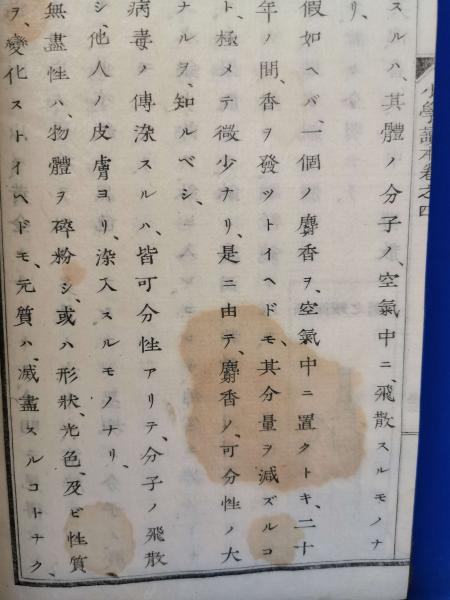 小學讀本卷之四
スルハ、其體ノ分子ノ、空氣中ニ、飛散スルモノナ
リ、
假如ヘバ、一個ノ麝香ヲ、空氣中ニ置クトキ、二十
年ノ間、香ヲ發ツトイヘドモ、其分量ヲ減ズルコ
ト、極メテ微少ナリ、是ニ由テ、麝香ノ、可分性ノ大
ナルヲ、知ルベシ、
病毒ノ傳染スルハ、皆可分性アリテ、分子ノ飛散
シ、他人ノ皮膚ヨリ、染入スルモノナリ、
無盡性ハ、物體ヲ碎粉シ、或ハ形狀、光色、及ビ性質
ヲ、變化ストイヘドモ、元質ハ、滅盡スルコトナク、